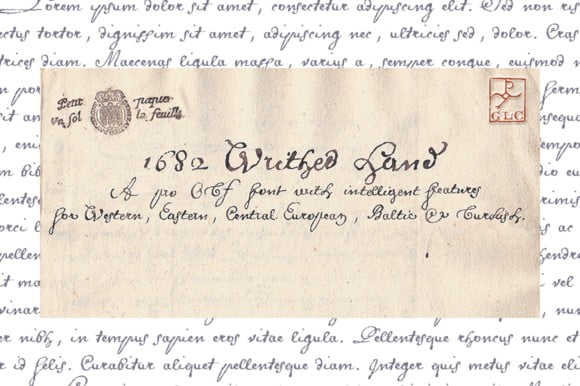 Lorem ipsum dolor sit amet, consectetur adipiscing elit. Sed non ris
ectus tortor, dignissim sit amet, adipiscing nec, ultricies sed, dolor. Cras
trices diam. Maecenas ligula massa, varius a, semper congue, euismod n
Petit papier
vn sol la feuille
GLC
1682 Writhed Hand
A pro OTF font with intelligent features
for Western, Eastern, Central European, Baltic & Turkish.
er nibh, in tempus sapien eros vitae ligula. Pellentesque rhoncus nunc et
id felis. Curabitur aliquet pellentesque diam. Integer quis metus vitae eli